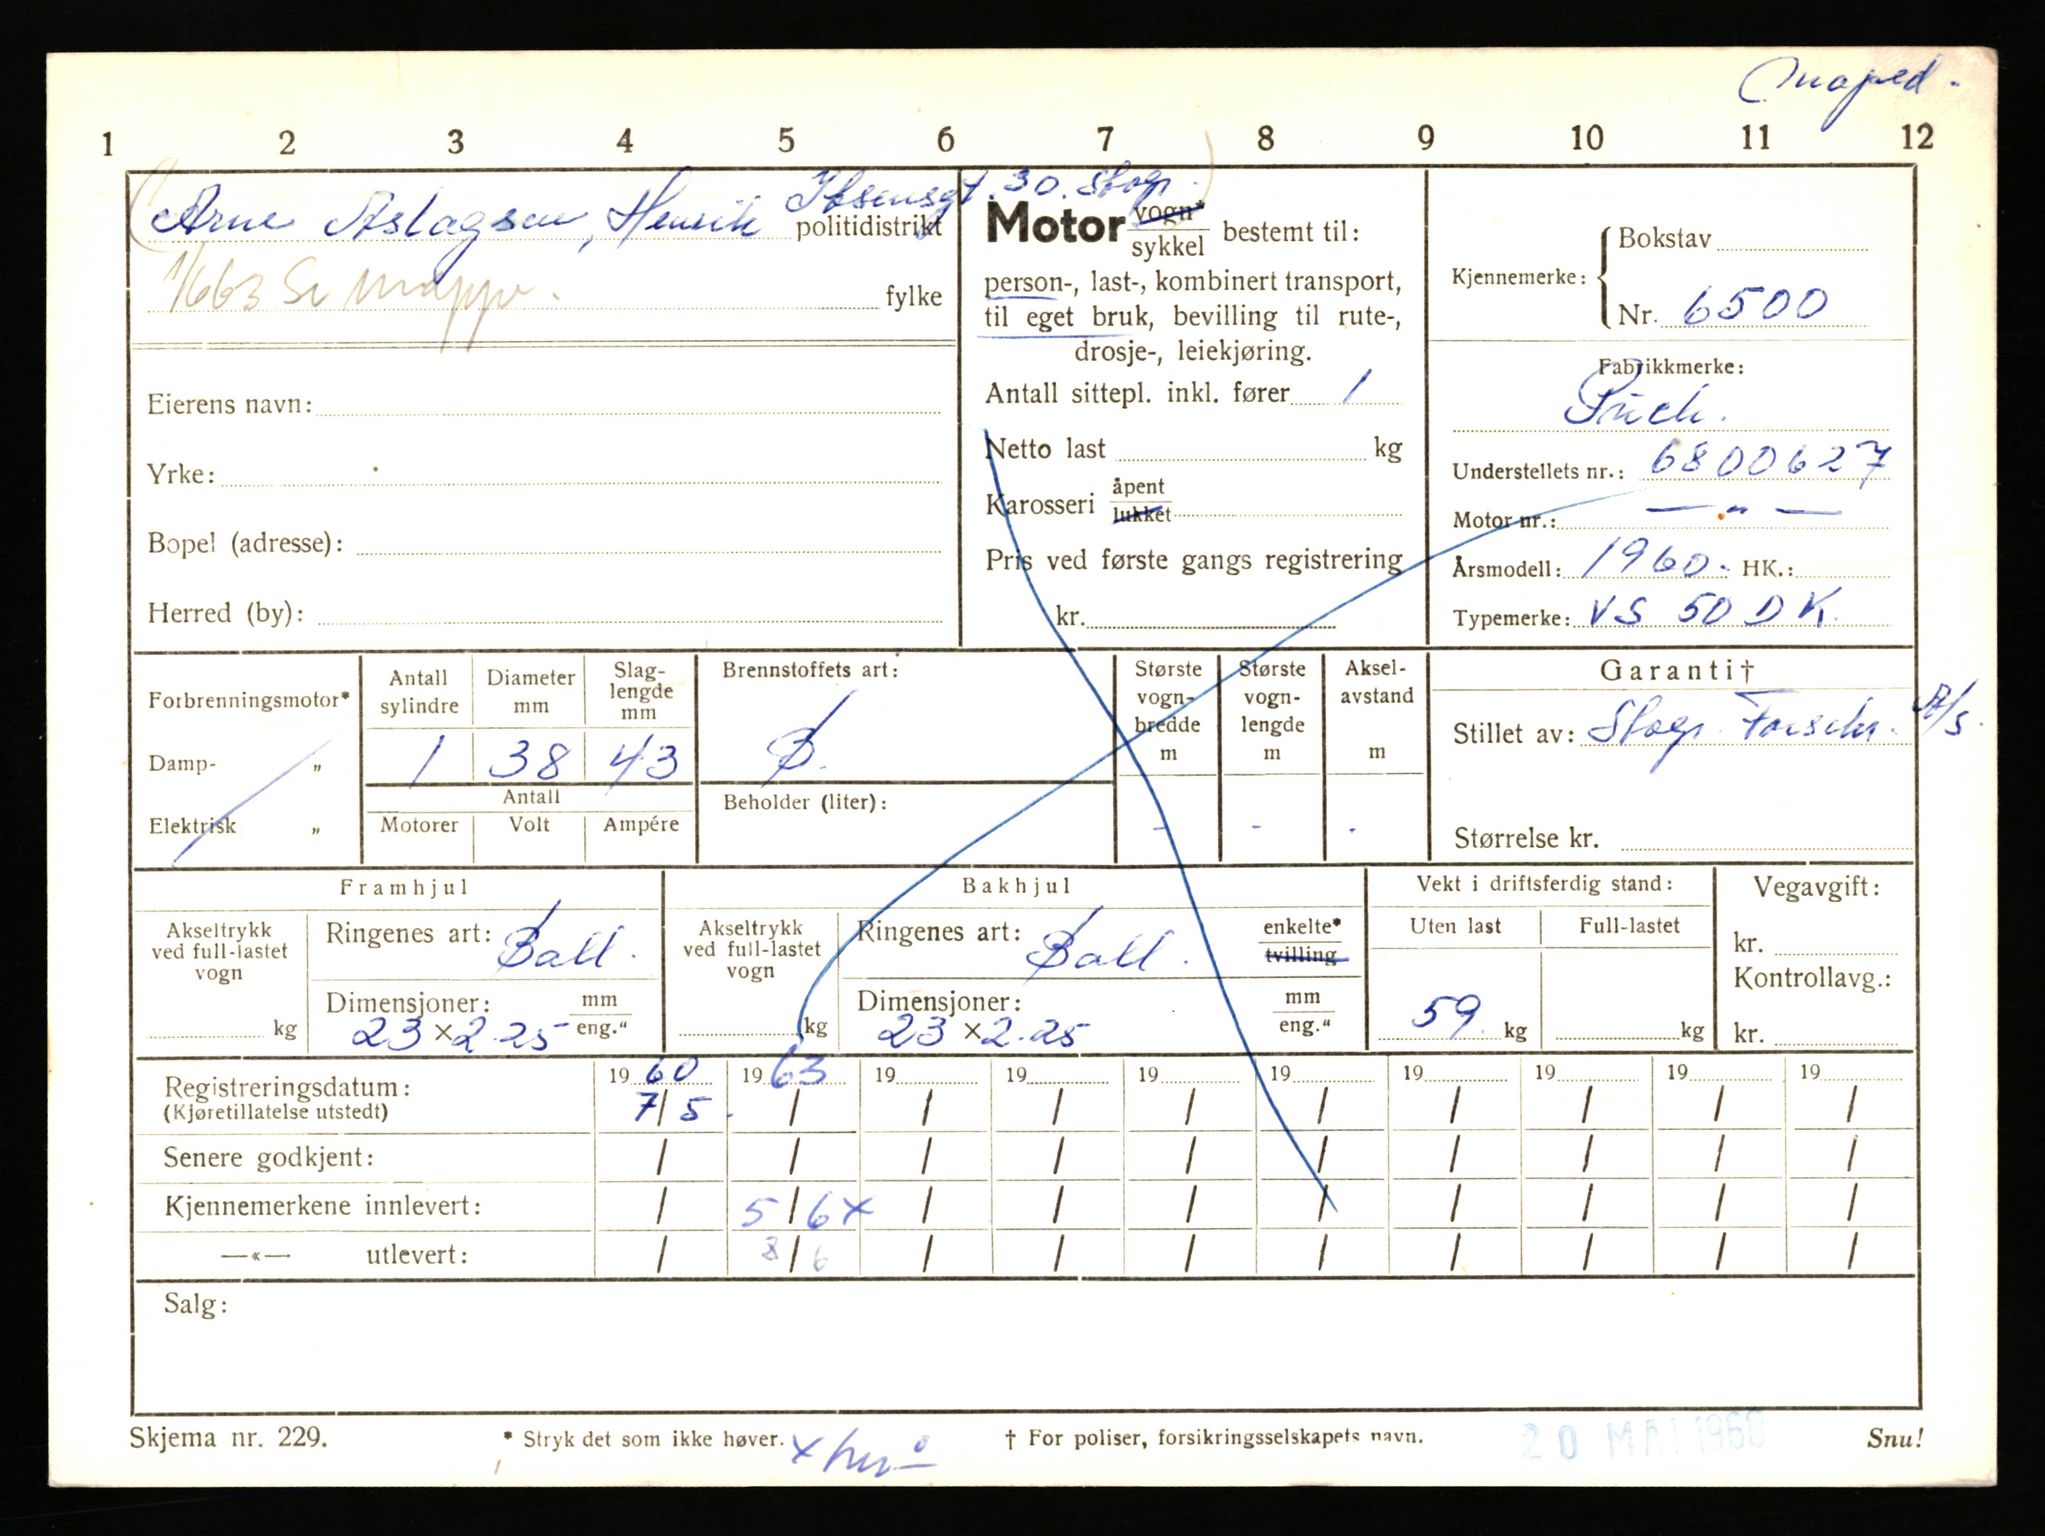 Moped.
1 2 3 4 5 6 7 8 9 10 11 12
Arne Aslagsen, Henrik Ibsensgt. 30. Stvgr.
politidistrikt
1/663 Se mappe.
fylke
Eierens navn:
Yrke:
Bopel (adresse):
Herred (by):
Motor vogn* / sykkel bestemt til:
person-, last-, kombinert transport,
til eget bruk, bevilling til rute-,
drosje-, leiekjøring.
Antall sittepl. inkl. fører 1
Netto last kg
Karosseri åpent / lukket
Pris ved første gangs registrering
kr.
Kjennemerke: Bokstav
Nr. 6500
Fabrikkmerke:
Puch.
Understellets nr.: 6800627
Motor nr.: — " —
Årsmodell: 1960. HK.:
Typemerke: VS 50 D K.
Forbrenningsmotor*
Damp- „
Elektrisk „
Antall sylindre
Diameter mm
Slag-lengde mm
1 38 43
Antall
Motorer Volt Ampére
Brennstoffets art:
B.
Beholder (liter):
Største vogn-bredde m
Største vogn-lengde m
Aksel-avstand m
- - .
Garanti†
Stillet av: Stvgr. Forsikr. A/S.
Størrelse kr.
Framhjul
Akseltrykk ved full-lastet vogn
kg
Ringenes art: Ball.
Dimensjoner: mm / eng."
23 x 2.25
Bakhjul
Akseltrykk ved full-lastet vogn
kg
Ringenes art: Ball. enkelte* / tvilling
Dimensjoner: mm / eng."
23 x 2.25
Vekt i driftsferdig stand:
Uten last Full-lastet
59 kg kg
Vegavgift:
kr.
Kontrollavg.:
kr.
Registreringsdatum: 19 60 19 63 19 19 19 19 19 19 19 19
(Kjøretillatelse utstedt) 7/5. / / / / / / / / /
Senere godkjent: / / / / / / / / / /
Kjennemerkene innlevert: / 5/6 x / / / / / / / /
—«— utlevert: / 8/6 / / / / / / / /
Salg:
Skjema nr. 229. * Stryk det som ikke høver. † For poliser, forsikringsselskapets navn. 20 MAI 1960 Snu!